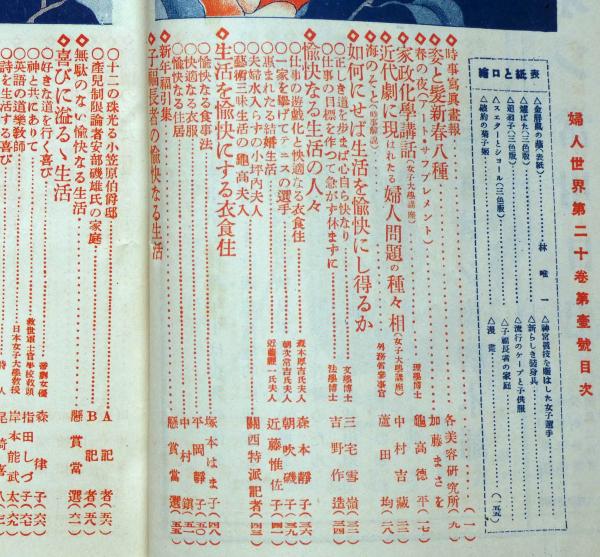 婦人世界第二十卷第壹號目次
表紙と口繪
△金屏風の蔭(表紙)……林唯一
△爐ばた(三色版)
△追羽子(三色版)
△スエターとショール(三色版)
△神宮競技を賑はした女子選手
△新らしき裝身具
△流行のケープと子供服
△子福長者の家庭
△漫畫……(一五五)
◇時事寫眞畫報……(一)
◇姿と髮新春八種……各美容研究所(九)
◇春の夜(アート・サプレメント)……加藤まさを
◇家政化學講話(女子大學講座)……理學博士 龜高德平(一七)
◇近代劇に現はれたる婦人問題の種々相(女子大學講座)……中村吉藏(二二)
◇海のそと(時事解説)……外務省參事官 蘆田均(二八)
◇如何にせば生活を愉快にし得るか
○正しき道を歩まば心自ら快なり……文學博士 三宅雪嶺(三二)
○仕事の目標を作つて急がず休まずに……法學博士 吉野作造(三四)
◇愉快なる生活の人々
○仕事の遊戲化と快適なる衣食住……森本厚吉氏夫人 森本靜子(三六)
○一家を擧げてテニスの選手……朝吹常吉氏夫人 朝吹磯子(三九)
○惠まれたる結婚生活……近藤經一氏夫人 近藤惟佐子(四一)
○夫婦水入らずの小坪内夫人
○藝術三昧生活の龜高夫人……關西特派記者(四三)
◇生活を愉快にする衣食住
○愉快なる食事法……塚本はま子(四八)
○快適なる衣服……平岡靜子(五〇)
○愉快なる住居……中村鎭(五二)
◇新年福引集……懸賞當選(五五)
◇子福長者の愉快なる生活
○十二の珠光る小笠原伯爵邸……A記者(五六)
○產兒制限論者安部磯雄氏の家庭……B記者(五八)
◇無駄のない愉快なる生活……懸賞當選(六一)
◇喜びに溢るゝ生活
○好きな道を行く喜び……帝劇女優 森律子(六六)
○神と共にありて……救世軍士官學校教頭 指田しづ
○英語の道樂教師……日本女子大學教授 岸本能武太
○詩を生活する喜び……詩人